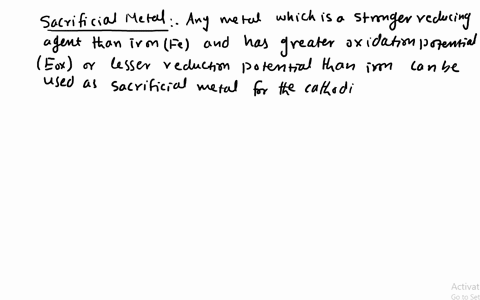 Sacrificial Metal:- Any metal which is a stronger reducing
agent than iron (Fe) and has greater oxidation potential
(Eox) or lesser reduction potential than iron can be
used as sacrificial metal for the cathodi
Activat
Go to Set